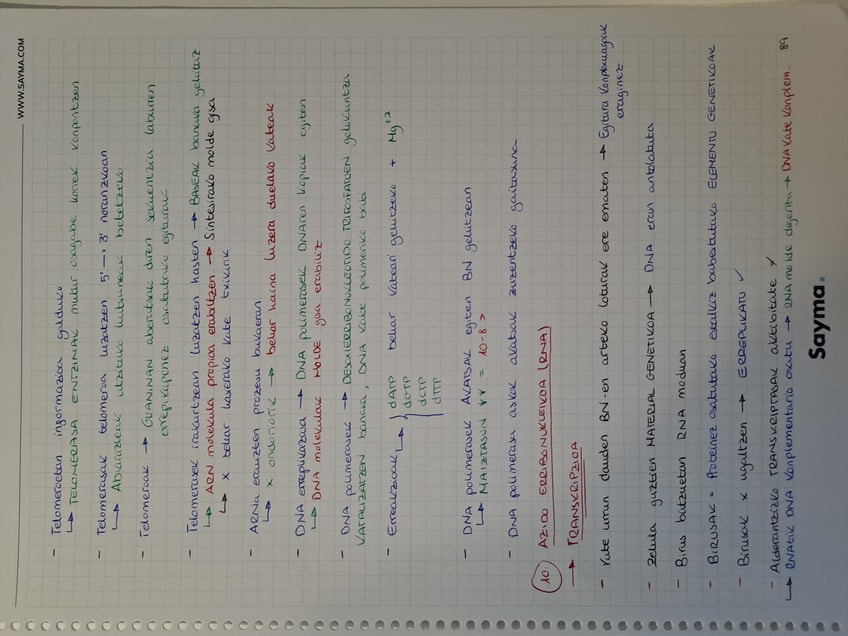 WWW.SAYMA.COM
- Telomeroetan informazioa galduko
↳ TELOMERASA ENTZIMAK mutur osagabe horiek konpontzen
- Telomerasak telomeroa luzatzen 5' → 3' norantzkoan
↳ Abiarazleak utzitako hutsuneak betetzeko
- Telomeroak → GUANINAN aberatsak diren sekuentzia laburren
errepikapenez osatutako egiturak
- Telomerasek irakurtzean luzatzen hasten → BASEAK banaka gehituz
↳ ARN molekula propioa erabiltzen → Sintesirako molde gisa
↳ x behar haserako kate txikirik
- ARNia erauzten prozesu bukaeran
↳ x ondoriorik → behar haina luzera duelako kateak
- DNA errepikazioa → DNA polimerasek DNAren kopiak egiten
↳ DNA molekulak MOLDE gisa erabiliz
- DNA polimerasek → DESOXIERRIBONUKLEOTIDO TRIFOSFATOEN gehikuntza
katalizatzen banaka, DNA kate polimeriko bati
- Erreakzioak ↳ { dATP dGTP dCTP dTTP behar katean gehitzeko + Mg+2
- DNA polimerasek AKATSAK egiten BN gehitzean
↳ MAIZTASUN ↓↓ = 10-8 >
- DNA polimerasa askok akatsak zuzentzeko gaitasuna
10 AZIDO ERRIBONUKLEIKOA (RNA)
→ TRANSKRIPZIOA
- Kate urrun dauden BN-en arteko loturak ere ematen → Egitura konplexuagoak
eraginez
- Zelula guztien MATERIAL GENETIKOA → DNA eran antolatuta
- Birus batzuetan RNA moduan
- BIRUSAK = Proteinez osatutako estalkiz babestutako ELEMENTU GENETIKOAK
- Birusak x ugaltzen → ERREPLIKATU ✓
- Alderantzizko TRANSKRIPTASAK aktibitate ≠
↳ RNAtik DNA konplementario osatu → RNA molde digeritu → DNA kate konplem.
89
Sayma.